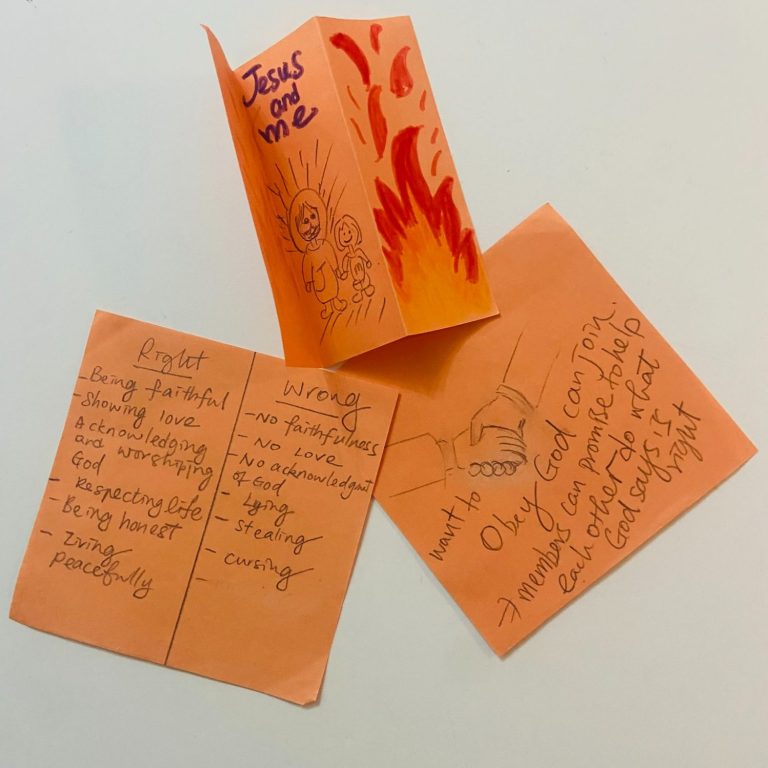 Jesus
and
me
Right
- Being faithful
- Showing love
Acknowledging
and worshiping
God
- Respecting life
- Being honest
- Living
peacefully
Wrong
- No faithfulness
- No Love
- No acknowledgment
of God
- Lying
- Stealing
- cursing
-
want to
Obey God can join.
members can promise to help
each other do what
God says is
right